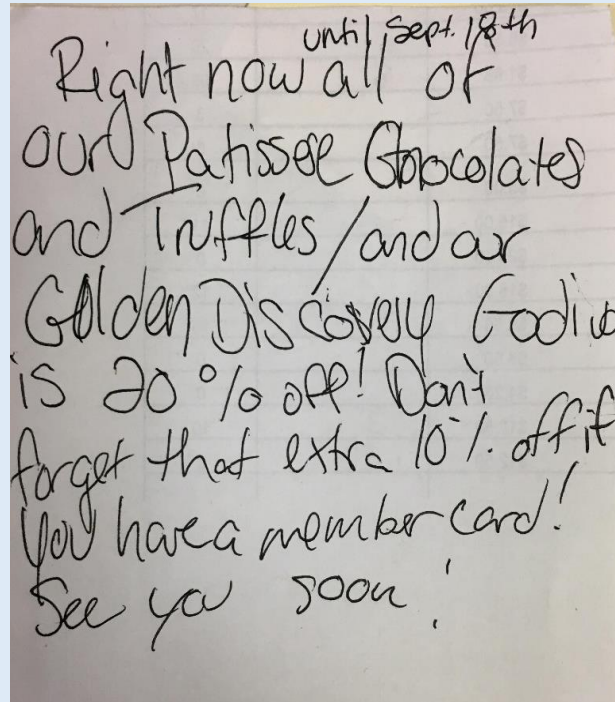 until Sept. 18th
Right now all of
our Patissere Chocolates
and Truffles / and our
Golden Discovery Godiva
is 20% off! Don't
forget that extra 10% off if
you have a member card!
See you soon!